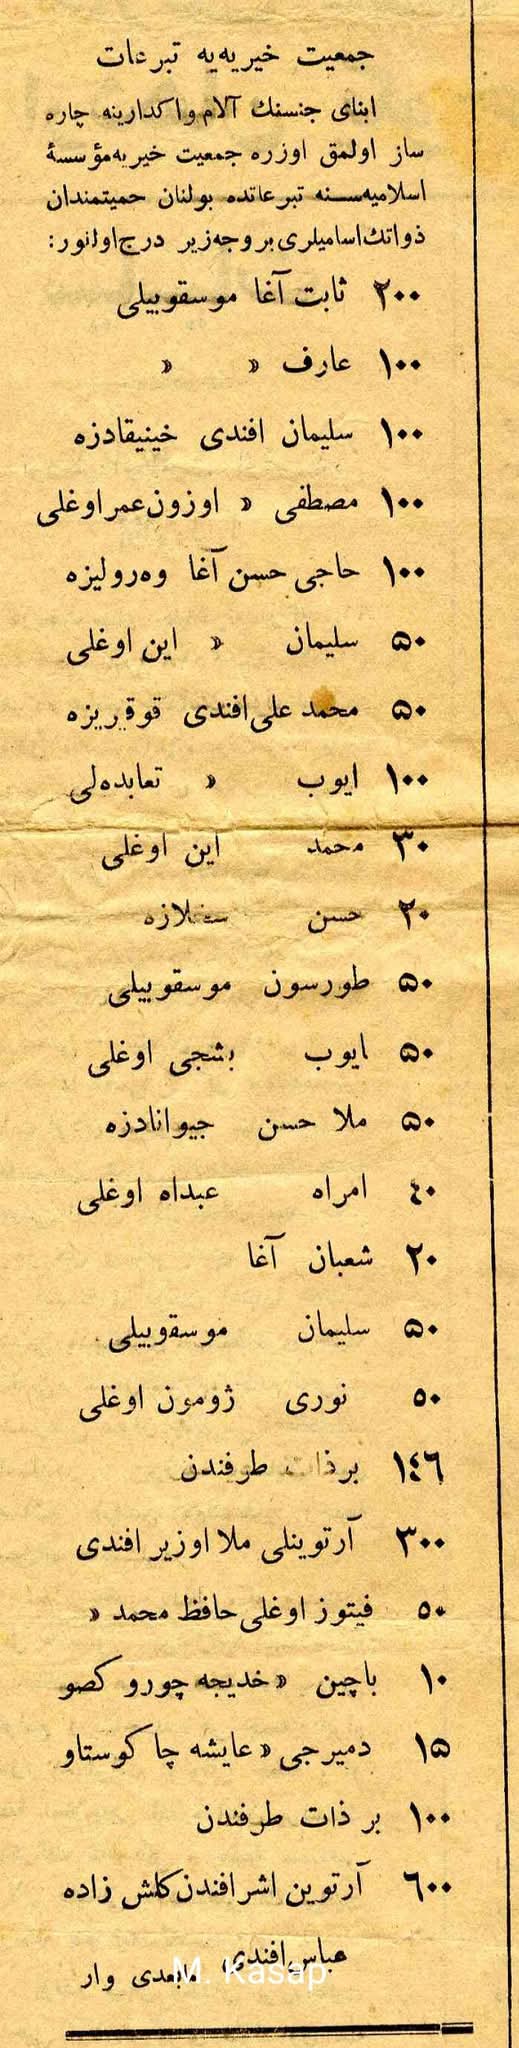 جمعيت خيريه‌يه تبرعات
ابنای جنسنك آلام واكدارينه چاره
ساز اولمق اوزره جمعيت خيريه مؤسسهٔ
اسلاميه‌سنه تبرعاتده بولنان حميتمندان
ذواتك اساميلری بروجه زير درج اولنور:
٢٠٠ ثابت آغا موسقوبيلی
١٠٠ عارف » »
١٠٠ سليمان افندی خينيقادزه
١٠٠ مصطفی » اوزون عمر اوغلی
١٠٠ حاجی حسن آغا وه‌روليزه
۵٠ سليمان » اين اوغلی
۵٠ محمد علی افندی قوقريزه
١٠٠ ايوب » تعابده‌لی
٣٠ محمد اين اوغلی
٢٠ حسن
۵٠ طورسون موسقوبيلی
۵٠ ايوب بشجی اوغلی
۵٠ ملا حسن جيوانادزه
٤٠ امراه عبداه اوغلی
٢٠ شعبان آغا
۵٠ سليمان موسقوبيلی
۵٠ نوری ژومون اوغلی
١٤٦ بر ذات طرفندن
٣٠٠ آرتوينلی ملا اوزير افندی
۵٠ فيتوز اوغلی حافظ محمد »
١٠ باچين » خديجه چورو كصو
١۵ دميرجی » عايشه چاكوستاو
١٠٠ بر ذات طرفندن
٦٠٠ آرتوين اشرافندن كلش زاده
عباس افندی
مابعدی وار
M. Kasap